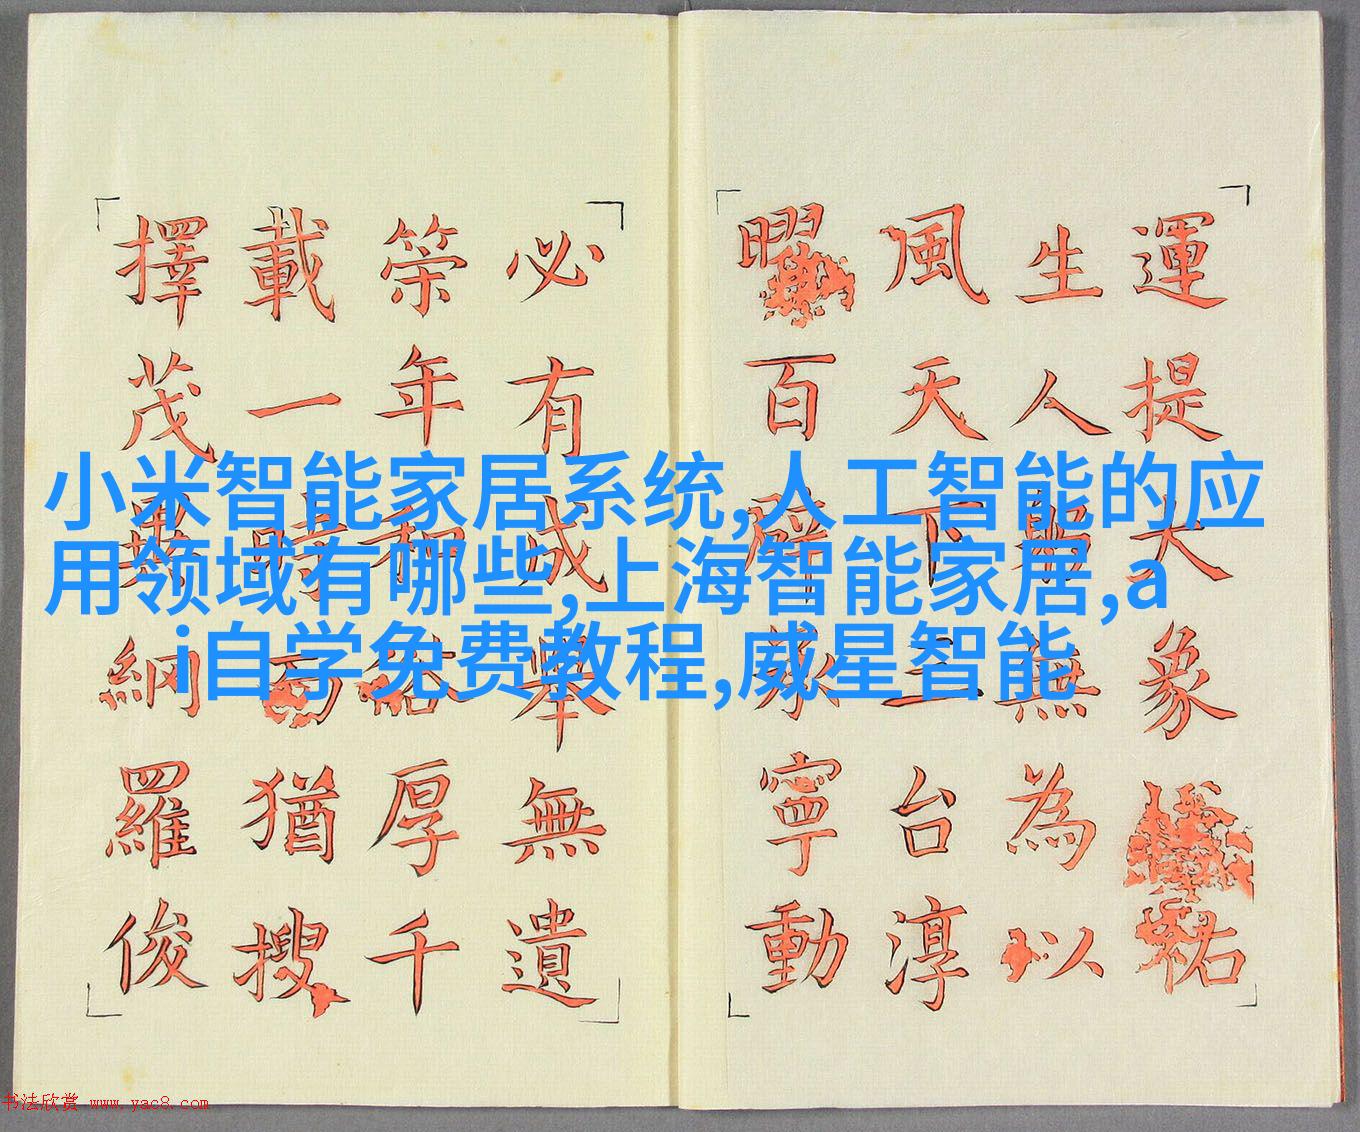 小米智能家居系统,人工智能的应
用领域有哪些,上海智能家居,a
i自学免费教程,威星智能
運提大象祐
生人無為以
風天下三台淳
曜百辟承寧動
必有成舉無遺
策年和厚千
載一時猶搜
擇茂異網羅俊
书法欣赏 www.yac8.com